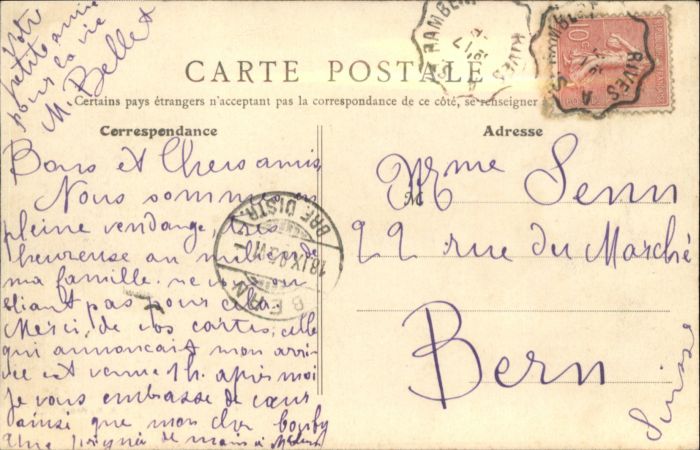 Votre
petite amie
pour la vie
M. Bellet
CARTE POSTALE
Certains pays étrangers n'acceptant pas la correspondance de ce côté, se renseigner
Correspondance
Adresse
Bons et Chers amis,
Nous sommes en
pleine vendange,
heureuse au milieu de
ma famille. ne vous ou
bliant pas pour cela.
Merci de vos cartes, celle
qui annoncait mon arri-
vée est venue 1h. après moi
Je vous embrasse de cœur
ainsi que mon cher
Une poignée de main à
Mme Senn
22 rue du Marché
Bern
Suisse
RAMBERT
RIVES
RIVES
10
BERN
BRF. DISTR.